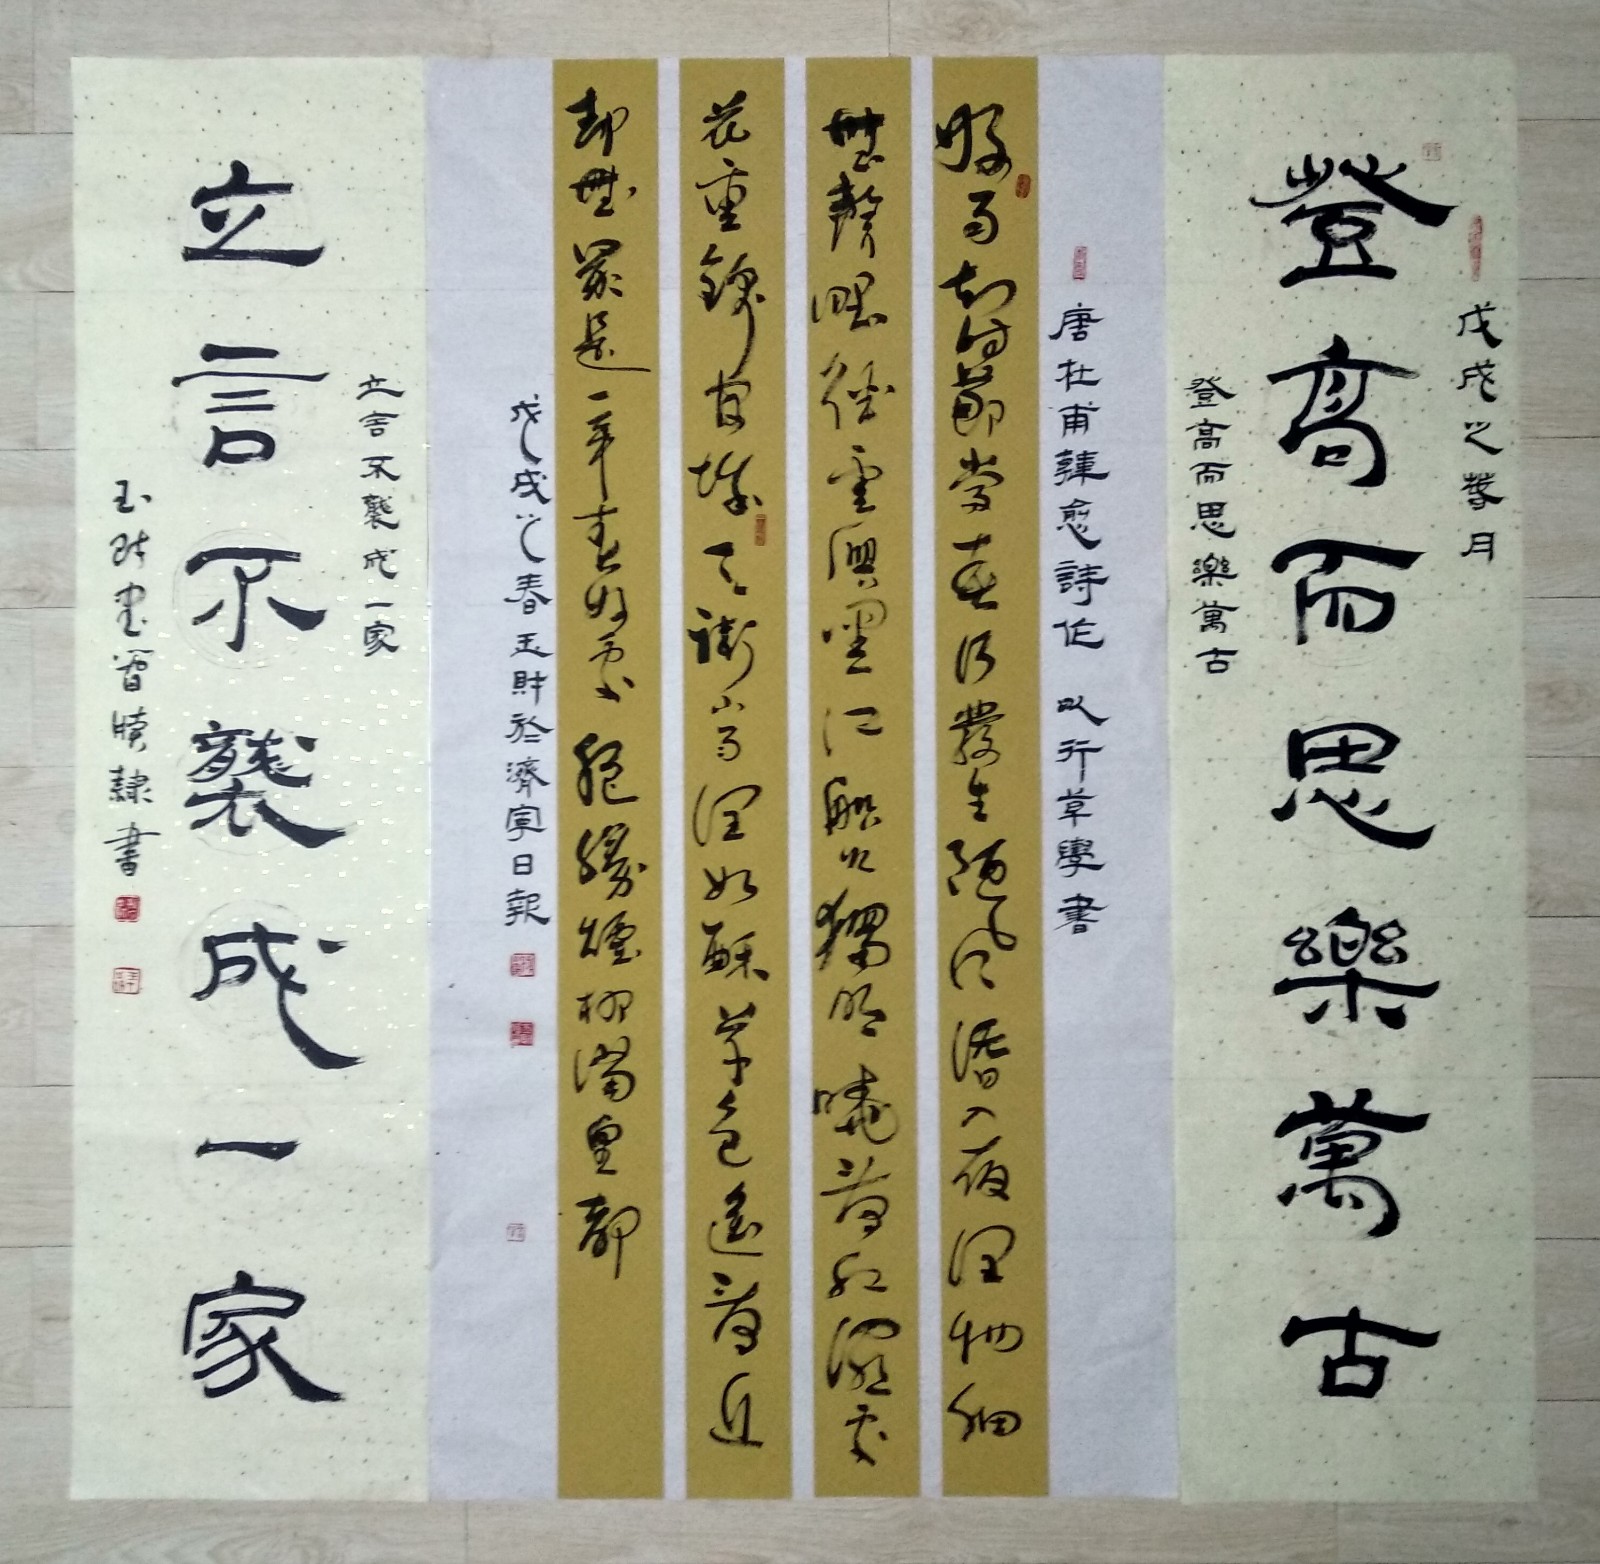 戊戌之月
登高而思樂萬古
登高而思樂萬古
唐杜甫韓愈詩作 以行草學書
好雨知時節當春乃發生随風潛入夜潤物細
無聲野徑雲俱黑江船火獨明曉看紅濕處
花重錦官城天街小雨潤如酥草色遙看近
却無最是一年春好處絕勝煙柳滿皇都
戊戌之春玉財於濟寧日報
立言不襲成一家
立言不襲成一家
玉財牘隸書